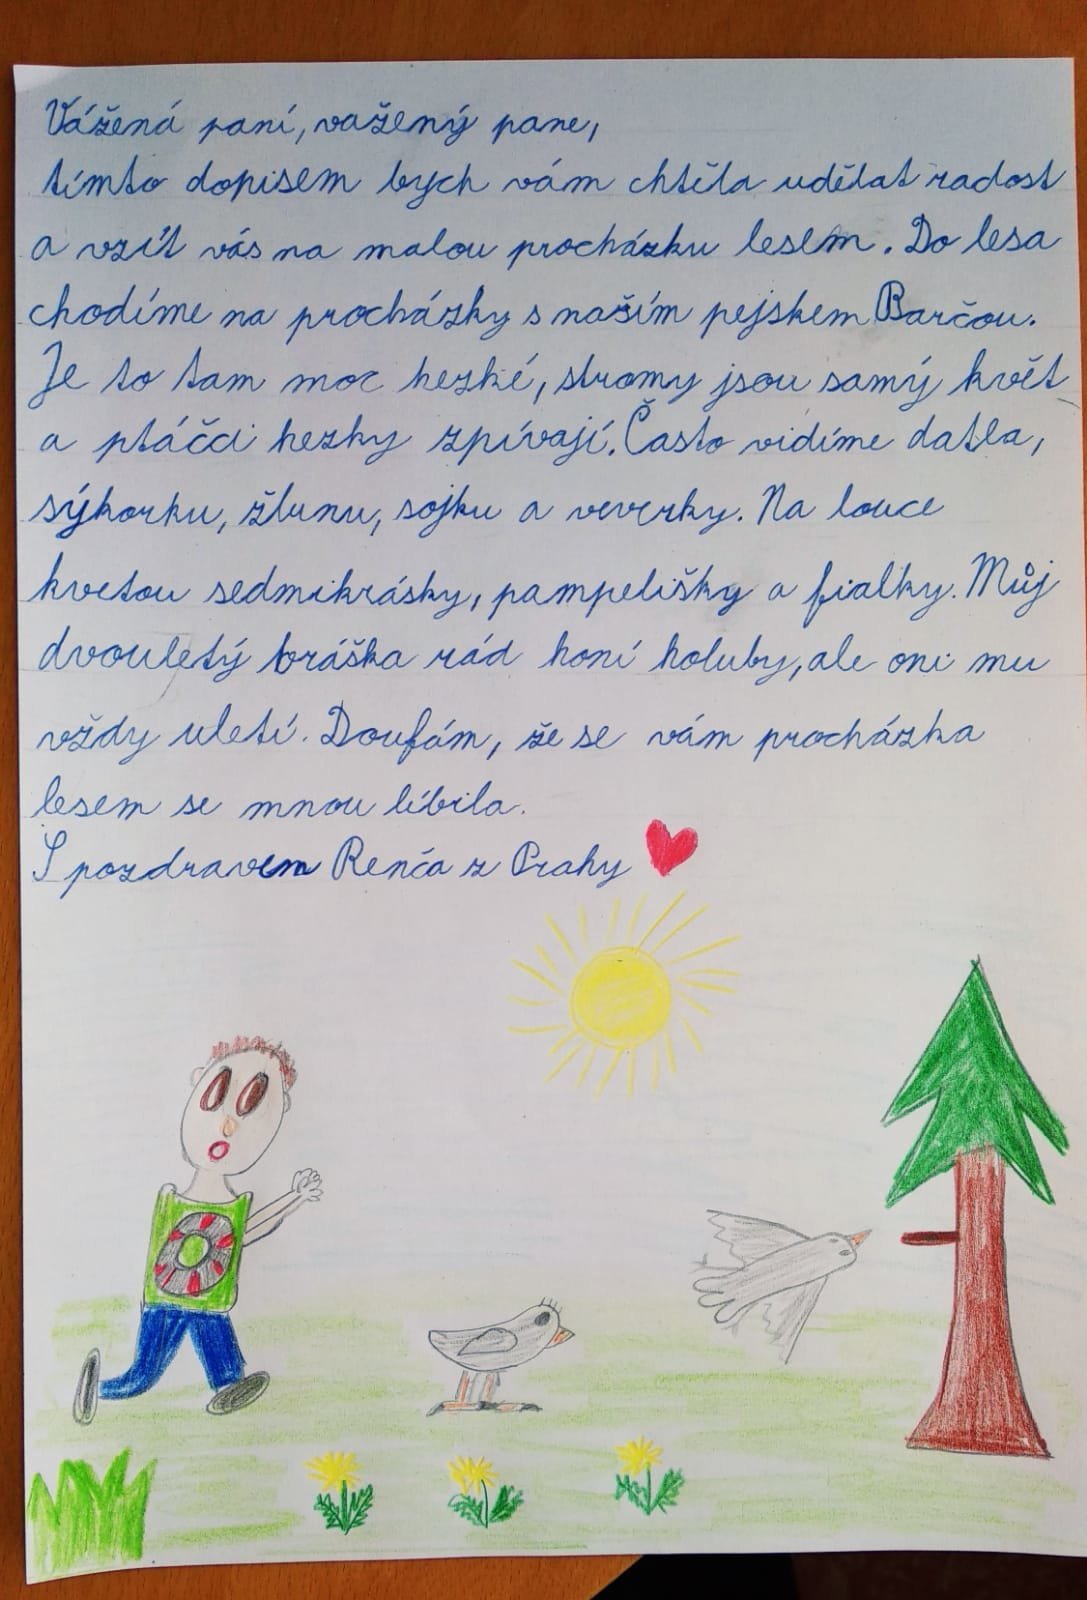 Vážená paní, važený pane,
tímto dopisem bych vám chtěla udělat radost
a vzít vás na malou procházku lesem. Do lesa
chodíme na procházky s naším pejskem Barčou.
Je to tam moc hezké, stromy jsou samý květ
a ptáčci hezky zpívají. Často vidíme datla,
sýkorku, žlunu, sojku a veverky. Na louce
kvetou sedmikrásky, pampelišky a fialky. Můj
dvouletý bráška rád honí holuby, ale oni mu
vždy uletí. Doufám, že se vám procházka
lesem se mnou líbila.
S pozdravem Renča z Prahy